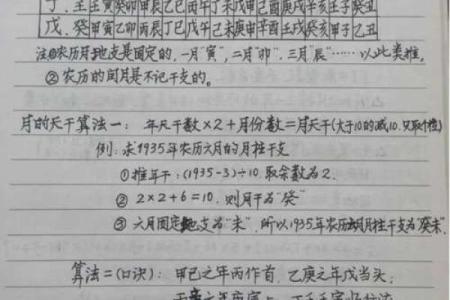 丁、壬 壬寅 癸卯 甲辰 乙巳 丙午 丁未 戊申 己酉 庚戌 辛亥 壬子 癸丑
戊、癸 甲寅 乙卯 丙辰 丁巳 戊午 己未 庚申 辛酉 壬戌 癸亥 甲子 乙丑
注①农历月地支是固定的,一月"寅",二月"卯",三月"辰"……以此类推。
②农历的闰月是不记干支的。
月的天干算法一: 年天干数×2+月份数=月天干(大于10的减10.只取个位)
例:求1935年农历六月的月柱干支
①推年干:(1935-3)÷10.取余数为2.
② 2×2+6=10. 则月干为"癸"
③ 六月固定地支为"未",所以1935年农历六月月柱干支为"癸未".
算法二(口诀):甲己之年丙作首,乙庚之年戊当头;
丙辛之年庚寅上